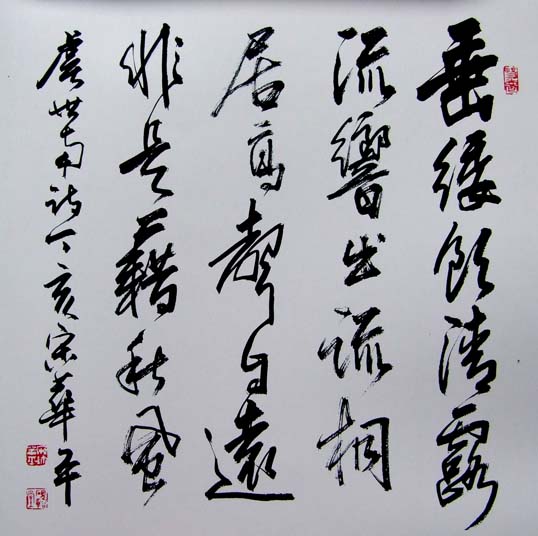 垂緌飲清露
流響出疏桐
居高聲自遠
非是藉秋風
虞世南詩丁亥宋華平